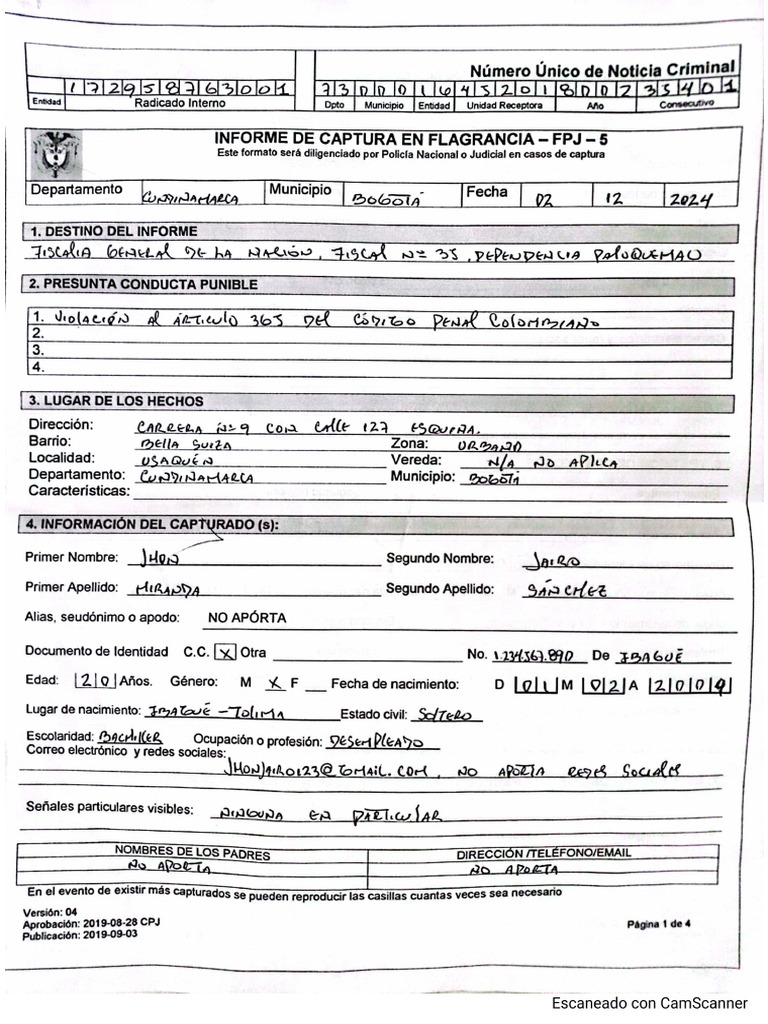 Número Único de Noticia Criminal
1 7 2 9 5 8 7 6 3 0 0 1
7 3 0 0 0 1 6 4 5 2 0 1 8 0 0 2 3 5 4 0 1
Entidad Radicado Interno Dpto Municipio Entidad Unidad Receptora Año Consecutivo
INFORME DE CAPTURA EN FLAGRANCIA – FPJ – 5
Este formato será diligenciado por Policía Nacional o Judicial en casos de captura
Departamento CUNDINAMARCA Municipio BOGOTÁ Fecha 02 12 2024
1. DESTINO DEL INFORME
FISCALIA GENERAL DE LA NACIÓN, FISCAL Nº 35, DEPENDENCIA PALOQUEMAO
2. PRESUNTA CONDUCTA PUNIBLE
1. VIOLACIÓN AL ÁRTICULO 365 DEL CÓDIGO PENAL COLOMBIANO
2.
3.
4.
3. LUGAR DE LOS HECHOS
Dirección: CARRERA Nº 9 CON CALLE 127 ESQUINA.
Barrio: BELLA SUIZA Zona: URBANA
Localidad: USAQUÉN Vereda: N/A NO APLICA
Departamento: CUNDINAMARCA Municipio: BOGOTÁ
Características:
4. INFORMACIÓN DEL CAPTURADO (s):
Primer Nombre: JHON Segundo Nombre: JAIRO
Primer Apellido: MIRANDA Segundo Apellido: SÁNCHEZ
Alias, seudónimo o apodo: NO APÓRTA
Documento de Identidad C.C. X Otra No. 1.234.567.890 De IBAGUÉ
Edad: 20 Años. Género: M X F Fecha de nacimiento: D 01 M 02 A 2004
Lugar de nacimiento: IBAGUÉ - TOLIMA Estado civil: SOLTERO
Escolaridad: BACHILLER Ocupación o profesión: DESEMPLEADO
Correo electrónico y redes sociales:
JHONJAIRO123@GMAIL.COM, NO APORTA REDES SOCIALES
Señales particulares visibles: NINGUNA EN PARTICULAR
NOMBRES DE LOS PADRES DIRECCIÓN /TELÉFONO/EMAIL
NO APORTA NO APORTA
En el evento de existir más capturados se pueden reproducir las casillas cuantas veces sea necesario
Versión: 04
Aprobación: 2019-08-28 CPJ
Publicación: 2019-09-03
Página 1 de 4
Escaneado con CamScanner